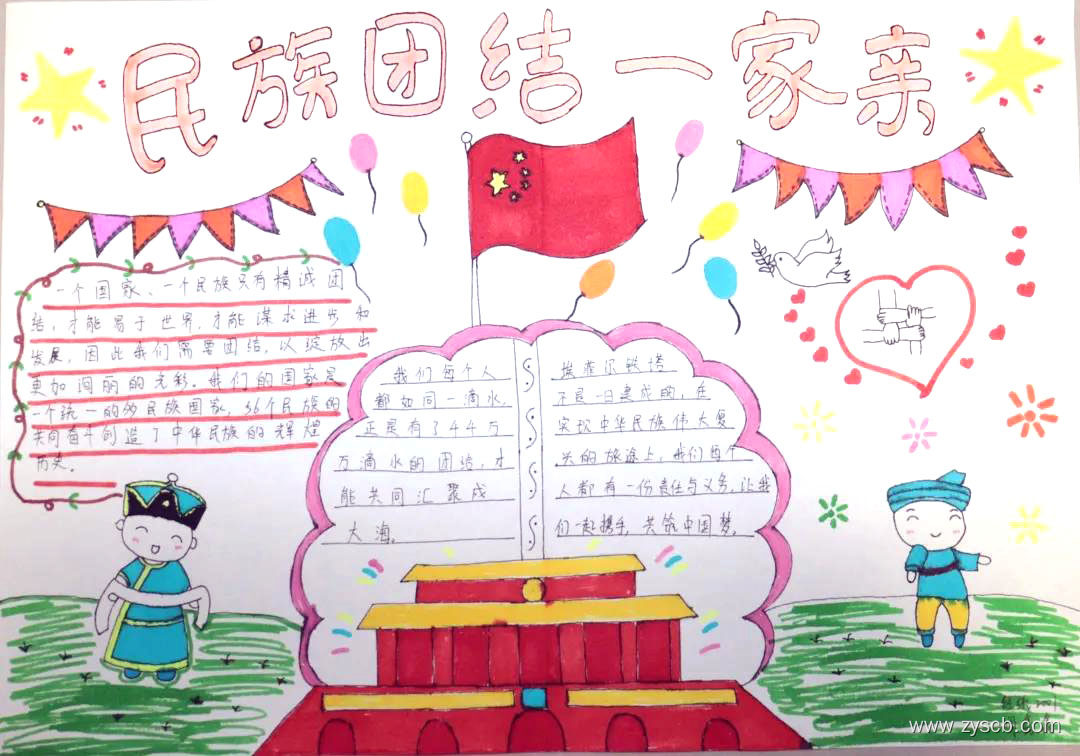 民族团结一家亲
一个国家、一个民族只有精诚团
结,才能易于世界,才能谋求进步和
发展,因此我们需要团结,以绽放出
更加润丽的光彩。我们的国家是
一个统一的多民族国家,56个民族的
共同奋斗创造了中华民族的辉煌
历史。
我们每个人
都如同一滴水,
正是有了44万
万滴水的团结,才
能共同汇聚成
大海。
埃菲尔铁塔
不是一日建成的,在
实现中华民族伟大复
兴的旅途上,我们每个
人都有一份责任与义务,让我
们一起携手,共筑中国梦。
www.zyscb.com